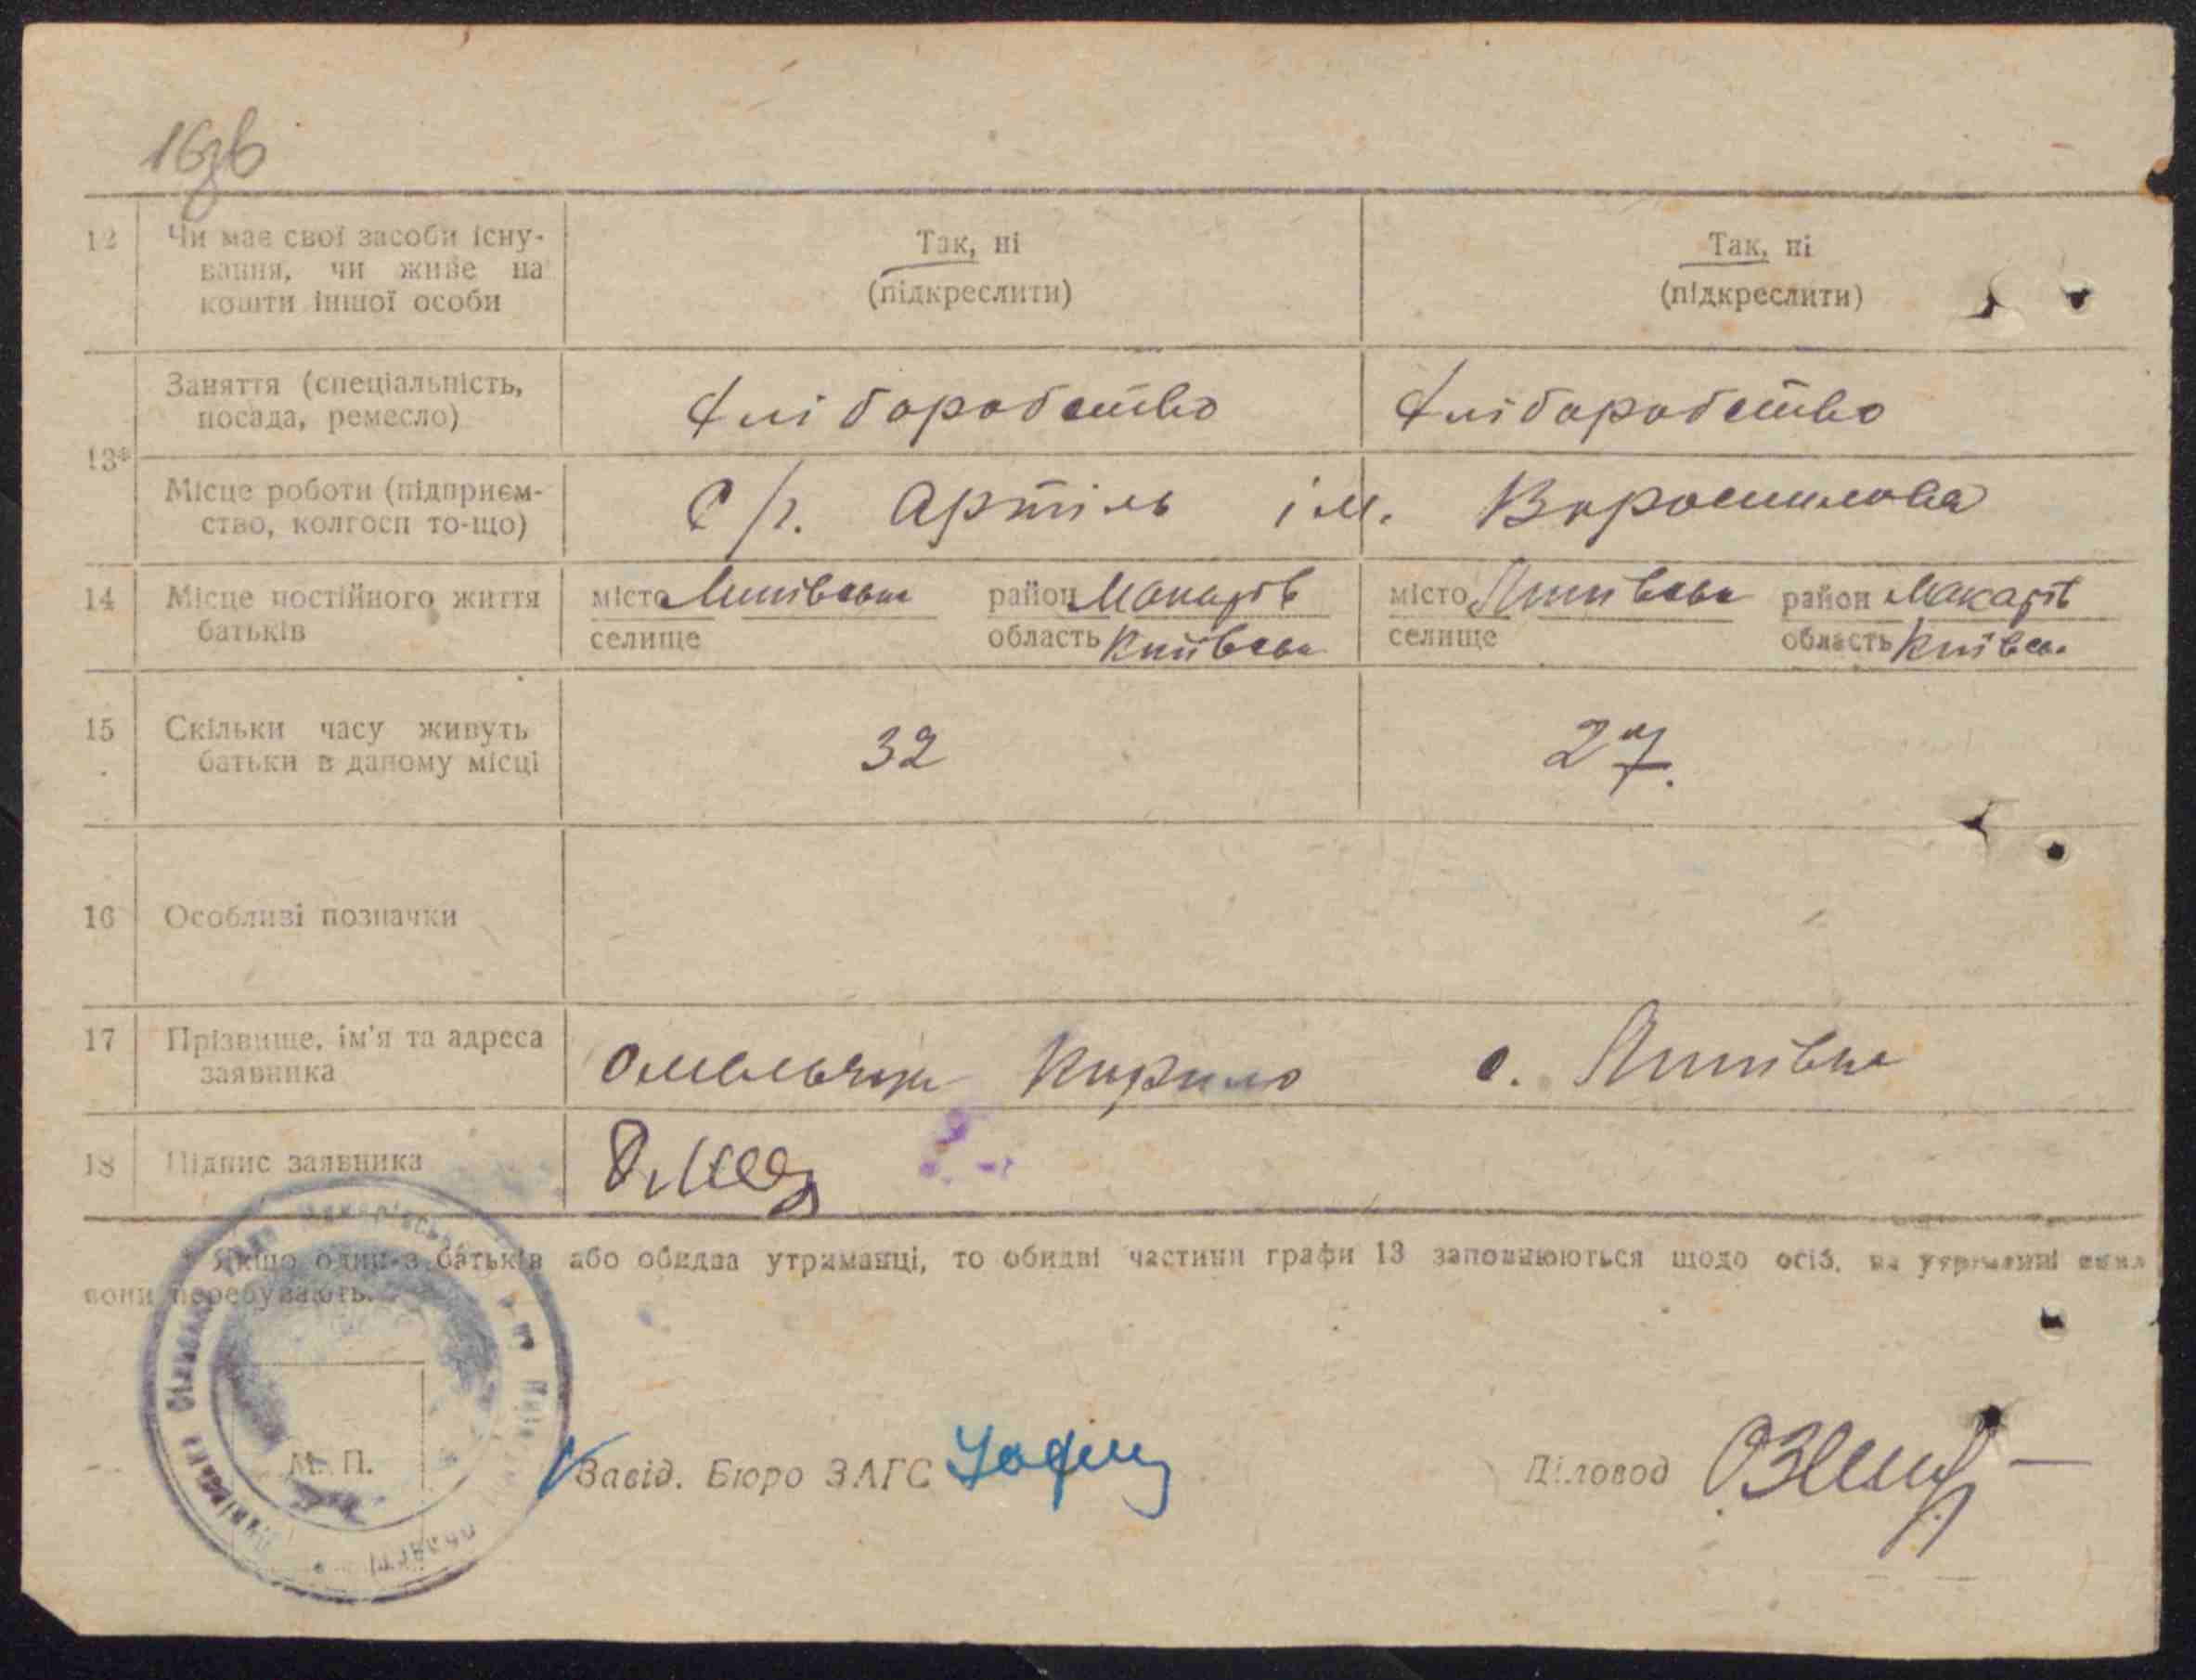 12 Чи має свої засоби існу-
вання, чи живе на
кошти іншої особи
Так, ні
(підкреслити)
Так, ні
(підкреслити)
13*
Заняття (спеціальність,
посада, ремесло)
Хліборобство
Хліборобство
Місце роботи (підприєм-
ство, колгосп то-що)
С/г. Артіль ім. Ворошилова
14 Місце постійного життя
батьків
місто район Макарів
селище область Київська
місто район Макарів
селище область Київськ
15 Скільки часу живуть
батьки в даному місці
32
27
16 Особливі позначки
17 Прізвище, ім'я та адреса
заявника
Омельчук Кирило с.
18 Підпис заявника
Якщо один з батьків або обидва утриманці, то обидві частини графи 13 заповнюються щодо осіб, на утриманні яких
вони перебувають.
М. П.
Завід. Бюро ЗАГС
Діловод